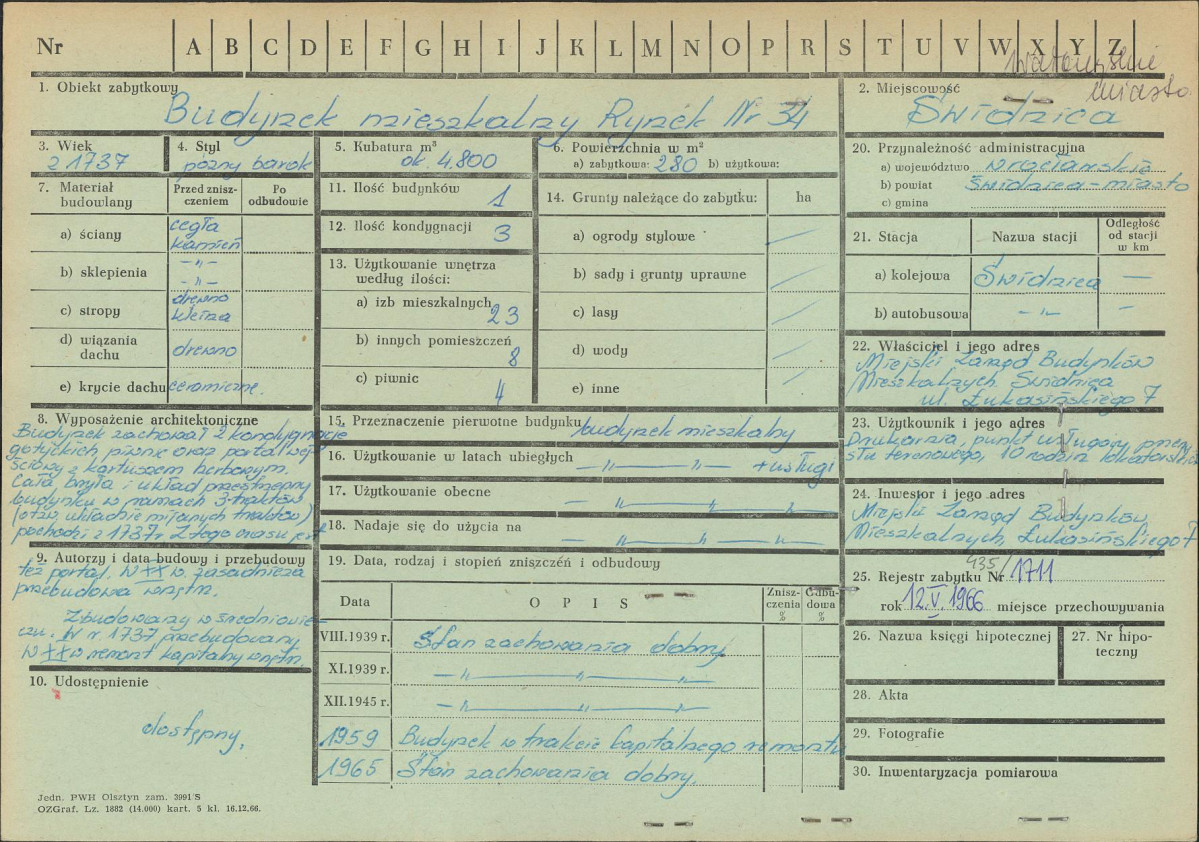 Nr A B C D E F G H I J K L M N O P R S T U V W X Y Z
miasto
1. Obiekt zabytkowy
Budynek mieszkalny Rynek Nr 34
2. Miejscowość
Świdnica
3. Wiek
z 1737
4. Styl
późny barok
5. Kubatura m³
ok. 4.800
6. Powierzchnia w m²
a) zabytkowa: 280 b) użytkowa:
20. Przynależność administracyjna
a) województwo wrocławskie
b) powiat Świdnica-miasto
c) gmina
7. Materiał budowlany
Przed zniszczeniem
Po odbudowie
a) ściany cegła kamień
b) sklepienia -„- -„-
c) stropy drewno kleina
d) wiązania dachu drewno
e) krycie dachu ceramiczne.
11. Ilość budynków 1
12. Ilość kondygnacji 3
13. Użytkowanie wnętrza według ilości:
a) izb mieszkalnych 23
b) innych pomieszczeń 8
c) piwnic 4
14. Grunty należące do zabytku: ha
a) ogrody stylowe
b) sady i grunty uprawne
c) lasy
d) wody
e) inne
21. Stacja
Nazwa stacji
Odległość od stacji w km
a) kolejowa Świdnica —
b) autobusowa -„- -
22. Właściciel i jego adres
Miejski Zarząd Budynków
Mieszkalnych Świdnica
ul. Łukasińskiego 7
8. Wyposażenie architektoniczne
Budynek zachował 2 kondygnacje
gotyckich piwnic oraz portal wej-
ściowy z kartuszem herbowym.
Cała bryła i układ przestrzenny
budynku w ramach 3-traktów
(o tzw. układzie mijanych traktów)
pochodzi z 1737 r. Z tego czasu jest
9. Autorzy i data budowy i przebudowy
też portal. W XX w. zasadnicza
przebudowa wnętrz.
Zbudowany w średniowie-
czu. W r. 1737 przebudowany
W XX w remont kapitalny wnętrz.
10. Udostępnienie
dostępny.
15. Przeznaczenie pierwotne budynku budynek mieszkalny
16. Użytkowanie w latach ubiegłych -„-„- + usługi
17. Użytkowanie obecne -„-„-
18. Nadaje się do użycia na -„-„-
19. Data, rodzaj i stopień zniszczeń i odbudowy
Data
OPIS
Zniszczenia %
Odbudowa %
VIII.1939 r. Stan zachowania dobry
XI.1939 r. -„-„-
XII.1945 r. -„-„-
1959 Budynek w trakcie kapitalnego remontu
1965 Stan zachowania dobry.
23. Użytkownik i jego adres
Drukarnia, punkt usługowy
stu terenowego, 10 rodzin lokatorskich
24. Inwestor i jego adres
Miejski Zarząd Budynków
Mieszkalnych, Łukasińskiego 7
435/
25. Rejestr zabytku Nr 1711
rok 12.V.1966 miejsce przechowywania
26. Nazwa księgi hipotecznej
27. Nr hipoteczny
28. Akta
29. Fotografie
30. Inwentaryzacja pomiarowa
Jedn. PWH Olsztyn zam. 3991/S
OZGraf. Lz. 1882 (14.000) kart. 5 kl. 16.12.66.